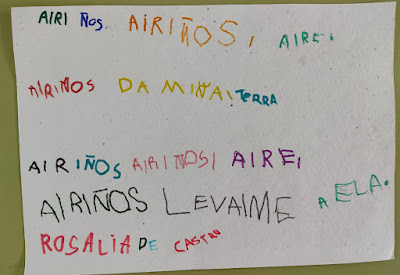 AIRIÑOS, AIRIÑOS, AIRE,
AIRIÑOS DA MIÑA TERRA
AIRIÑOS AIRIÑOS, AIRE,
AIRIÑOS LEVAIME A ELA.
ROSALIA DE CASTRO